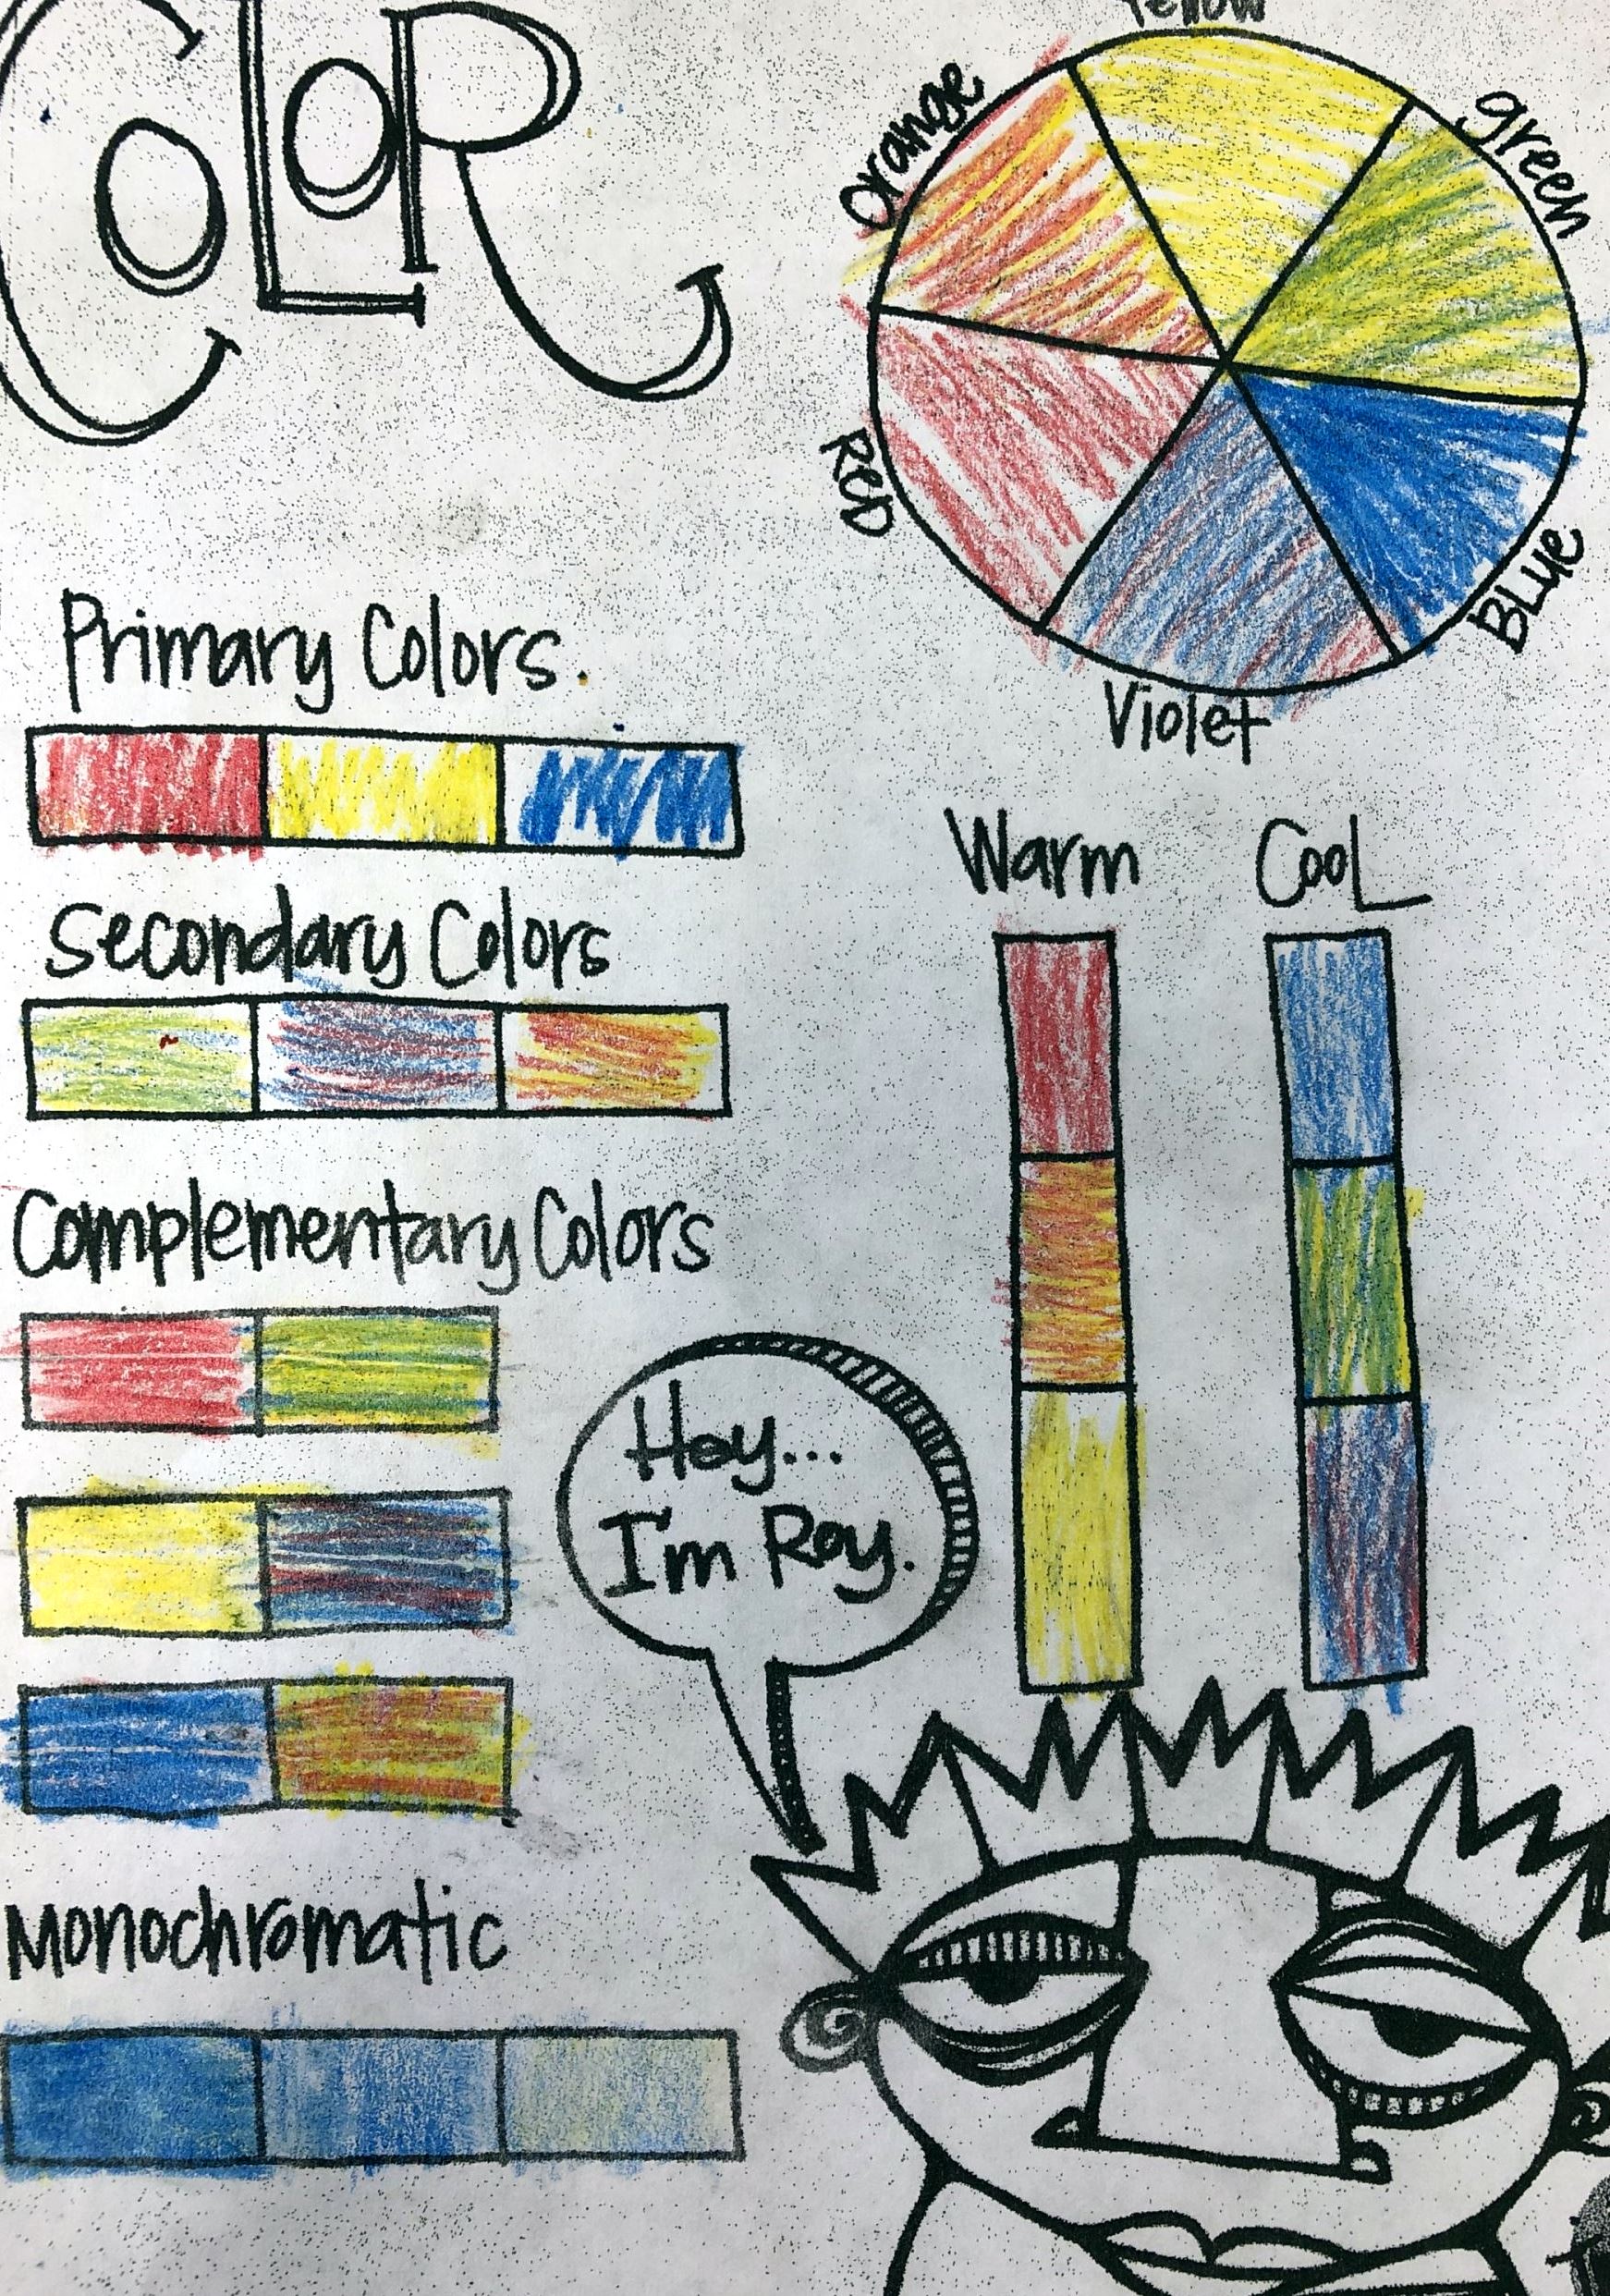 COLOR
Yellow
orange
green
RED
BLue
Violet
Primary Colors.
Secondary Colors
Complementary Colors
Monochromatic
Warm
CooL
Hey...
I'm Roy.